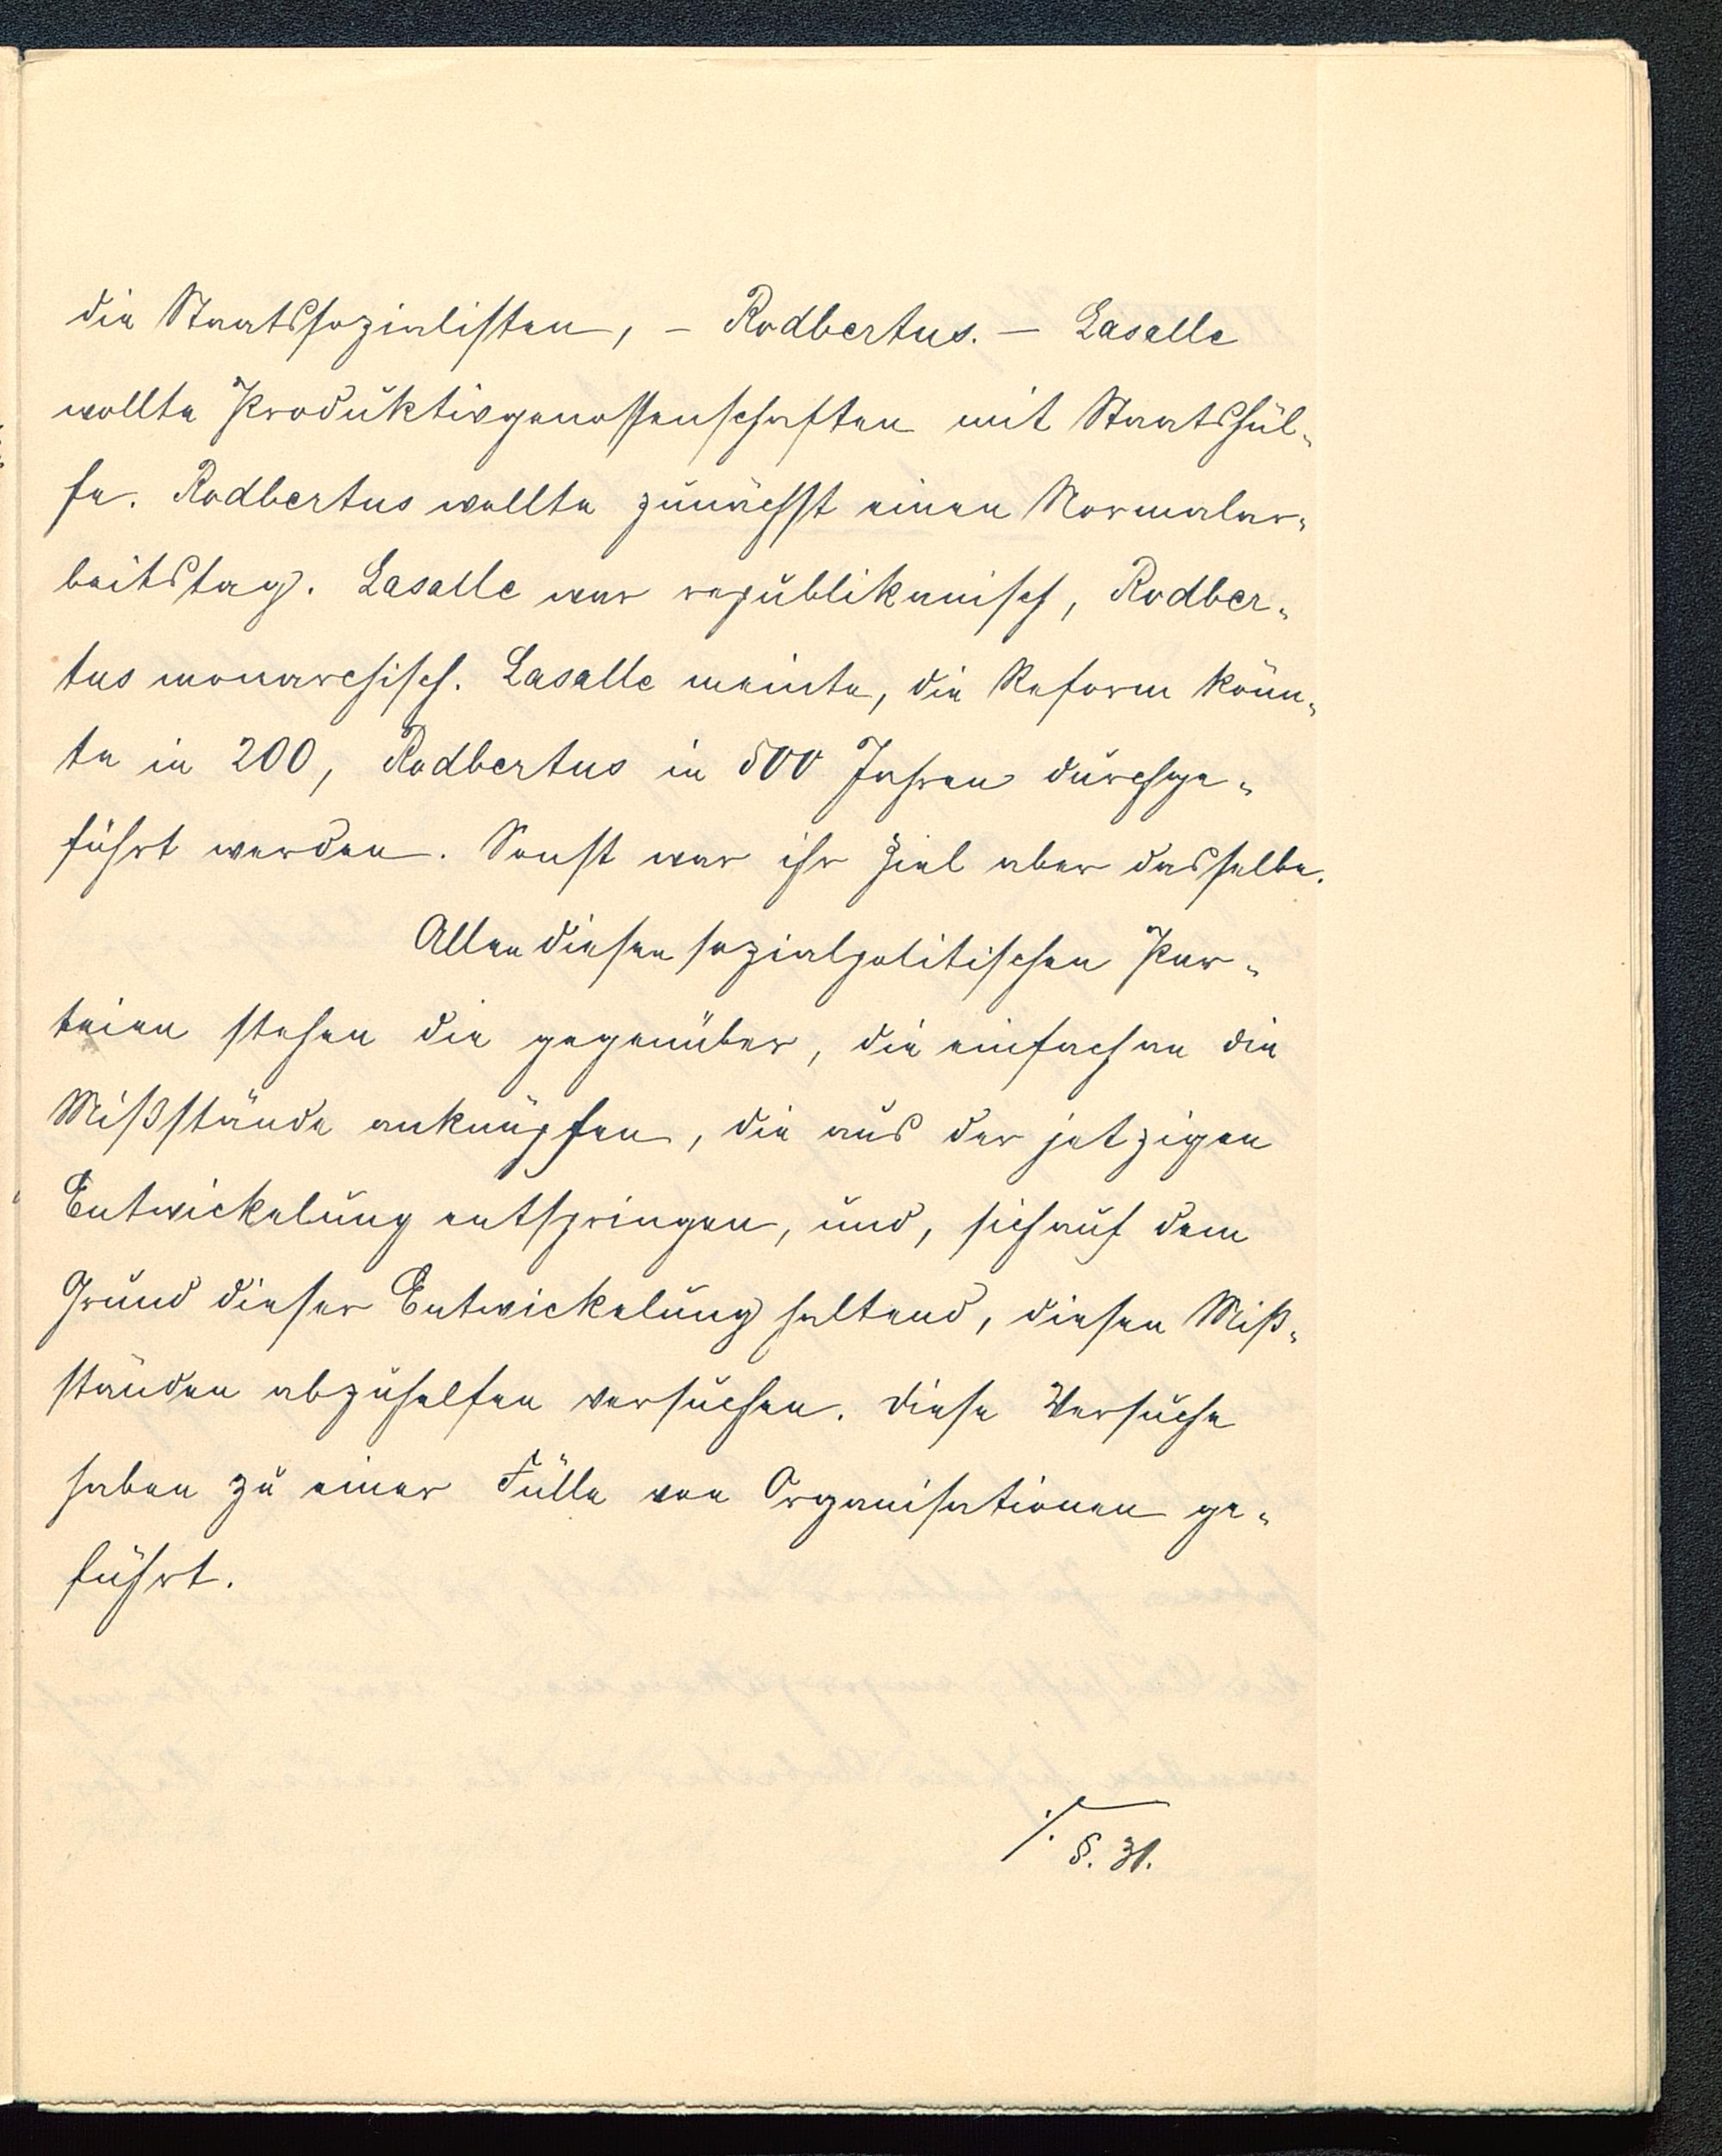 die Staatssozialisten, – Rodbertus. – Lasalle
wollte Produktivgenossenschaften mit Staatshül-
fe. Rodbertus wollte zunächst einen Normalar-
beitstag. Lasalle war republikanisch, Rodber-
tus monarchisch. Lasalle meinte, die Reform könn-
te in 200, Rodbertus in 500 Jahren durchge-
führt werden. Sonst war ihr Ziel aber dasselbe.
Allen diesen sozialpolitischen Par-
teien stehen die gegenüber, die einfach an die
Mißstände anknüpfen, die aus der jetzigen
Entwickelung entspringen, und, sich auf dem
Grund dieser Entwickelung haltend, diesen Miß-
ständen abzuhelfen versuchen. Diese Versuche
haben zu einer Fülle von Organisationen ge-
führt.
§. 31.